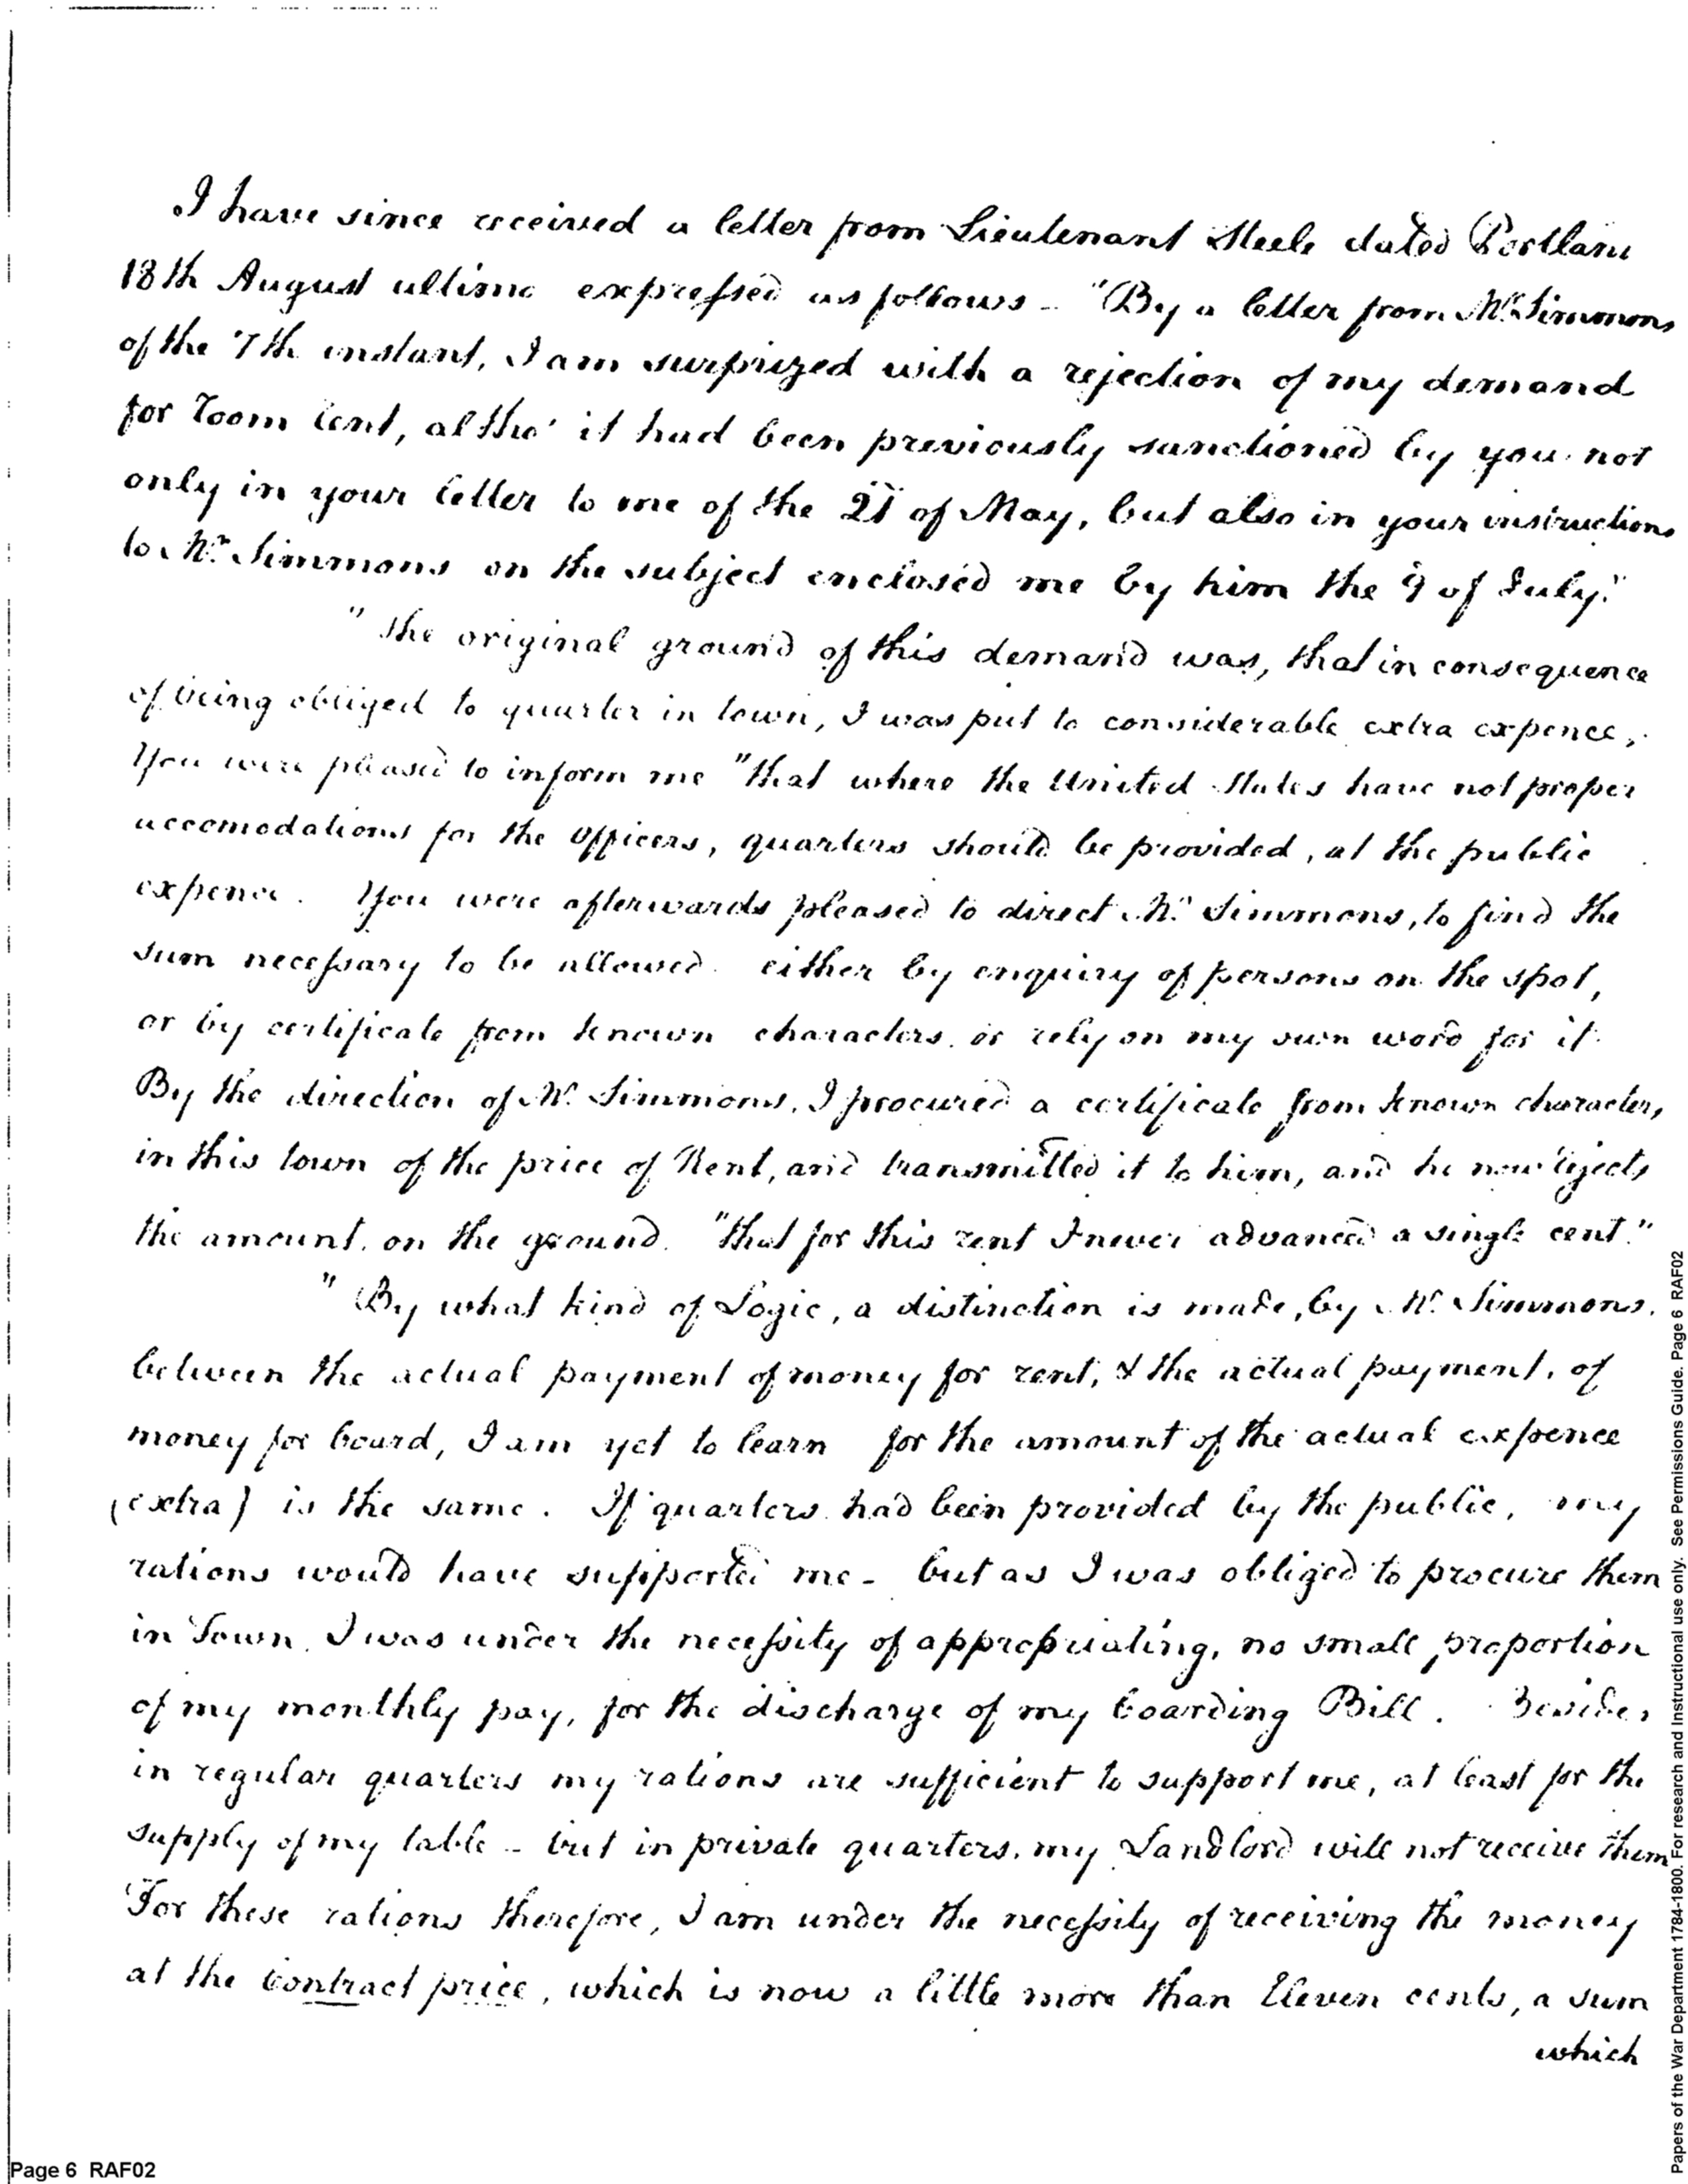 I have since received a letter from Lieutenant Steele dated Portland
18th August ultimo expressed as follows - "By a letter from Mr. Simmons
of the 7th instant, I am surprized with a rejection of my demand
for room rent, altho' it had been previously sanctioned by you not
only in your letter to me of the 21 of May, but also in your instructions
to Mr. Simmons on the subject enclosed me by him the 9 of July."
"The original ground of this demand was, that in consequence
of being obliged to quarter in town, I was put to considerable extra expence,
You were pleased to inform me "that where the United States have not proper
accomodations for the officers, quarters should be provided, at the public
expence. You were afterwards pleased to direct Mr. Simmons, to find the
sum necessary to be allowed. either by enquiry of persons on the spot,
or by certificate from known characters. or rely on my own word for it.
By the direction of Mr. Simmons, I procured a certificate from known characters,
in this town of the price of Rent, and transmitted it to him, and he now rejects
the amount, on the ground. "that for this rent I never advanced a single cent."
"By what kind of Logic, a distinction is made, by Mr. Simmons.
between the actual payment of money for rent, & the actual payment, of
money for board, I am yet to learn for the amount of the actual expence
(extra) is the same. If quarters had been provided by the public, my
rations would have supported me - but as I was obliged to procure them
in Town, I was under the necessity of appropriating, no small proportion
of my monthly pay, for the discharge of my boarding Bill. Besides
in regular quarters my rations are sufficient to support me, at least for the
supply of my table - but in private quarters, my Landlord will not receive them
For these rations therefore, I am under the necessity of receiving the money
at the contract price, which is now a little more than Eleven cents, a sum
which
Page 6 RAF02
Papers of the War Department 1784-1800. For research and Instructional use only. See Permissions Guide. Page 6 RAF02